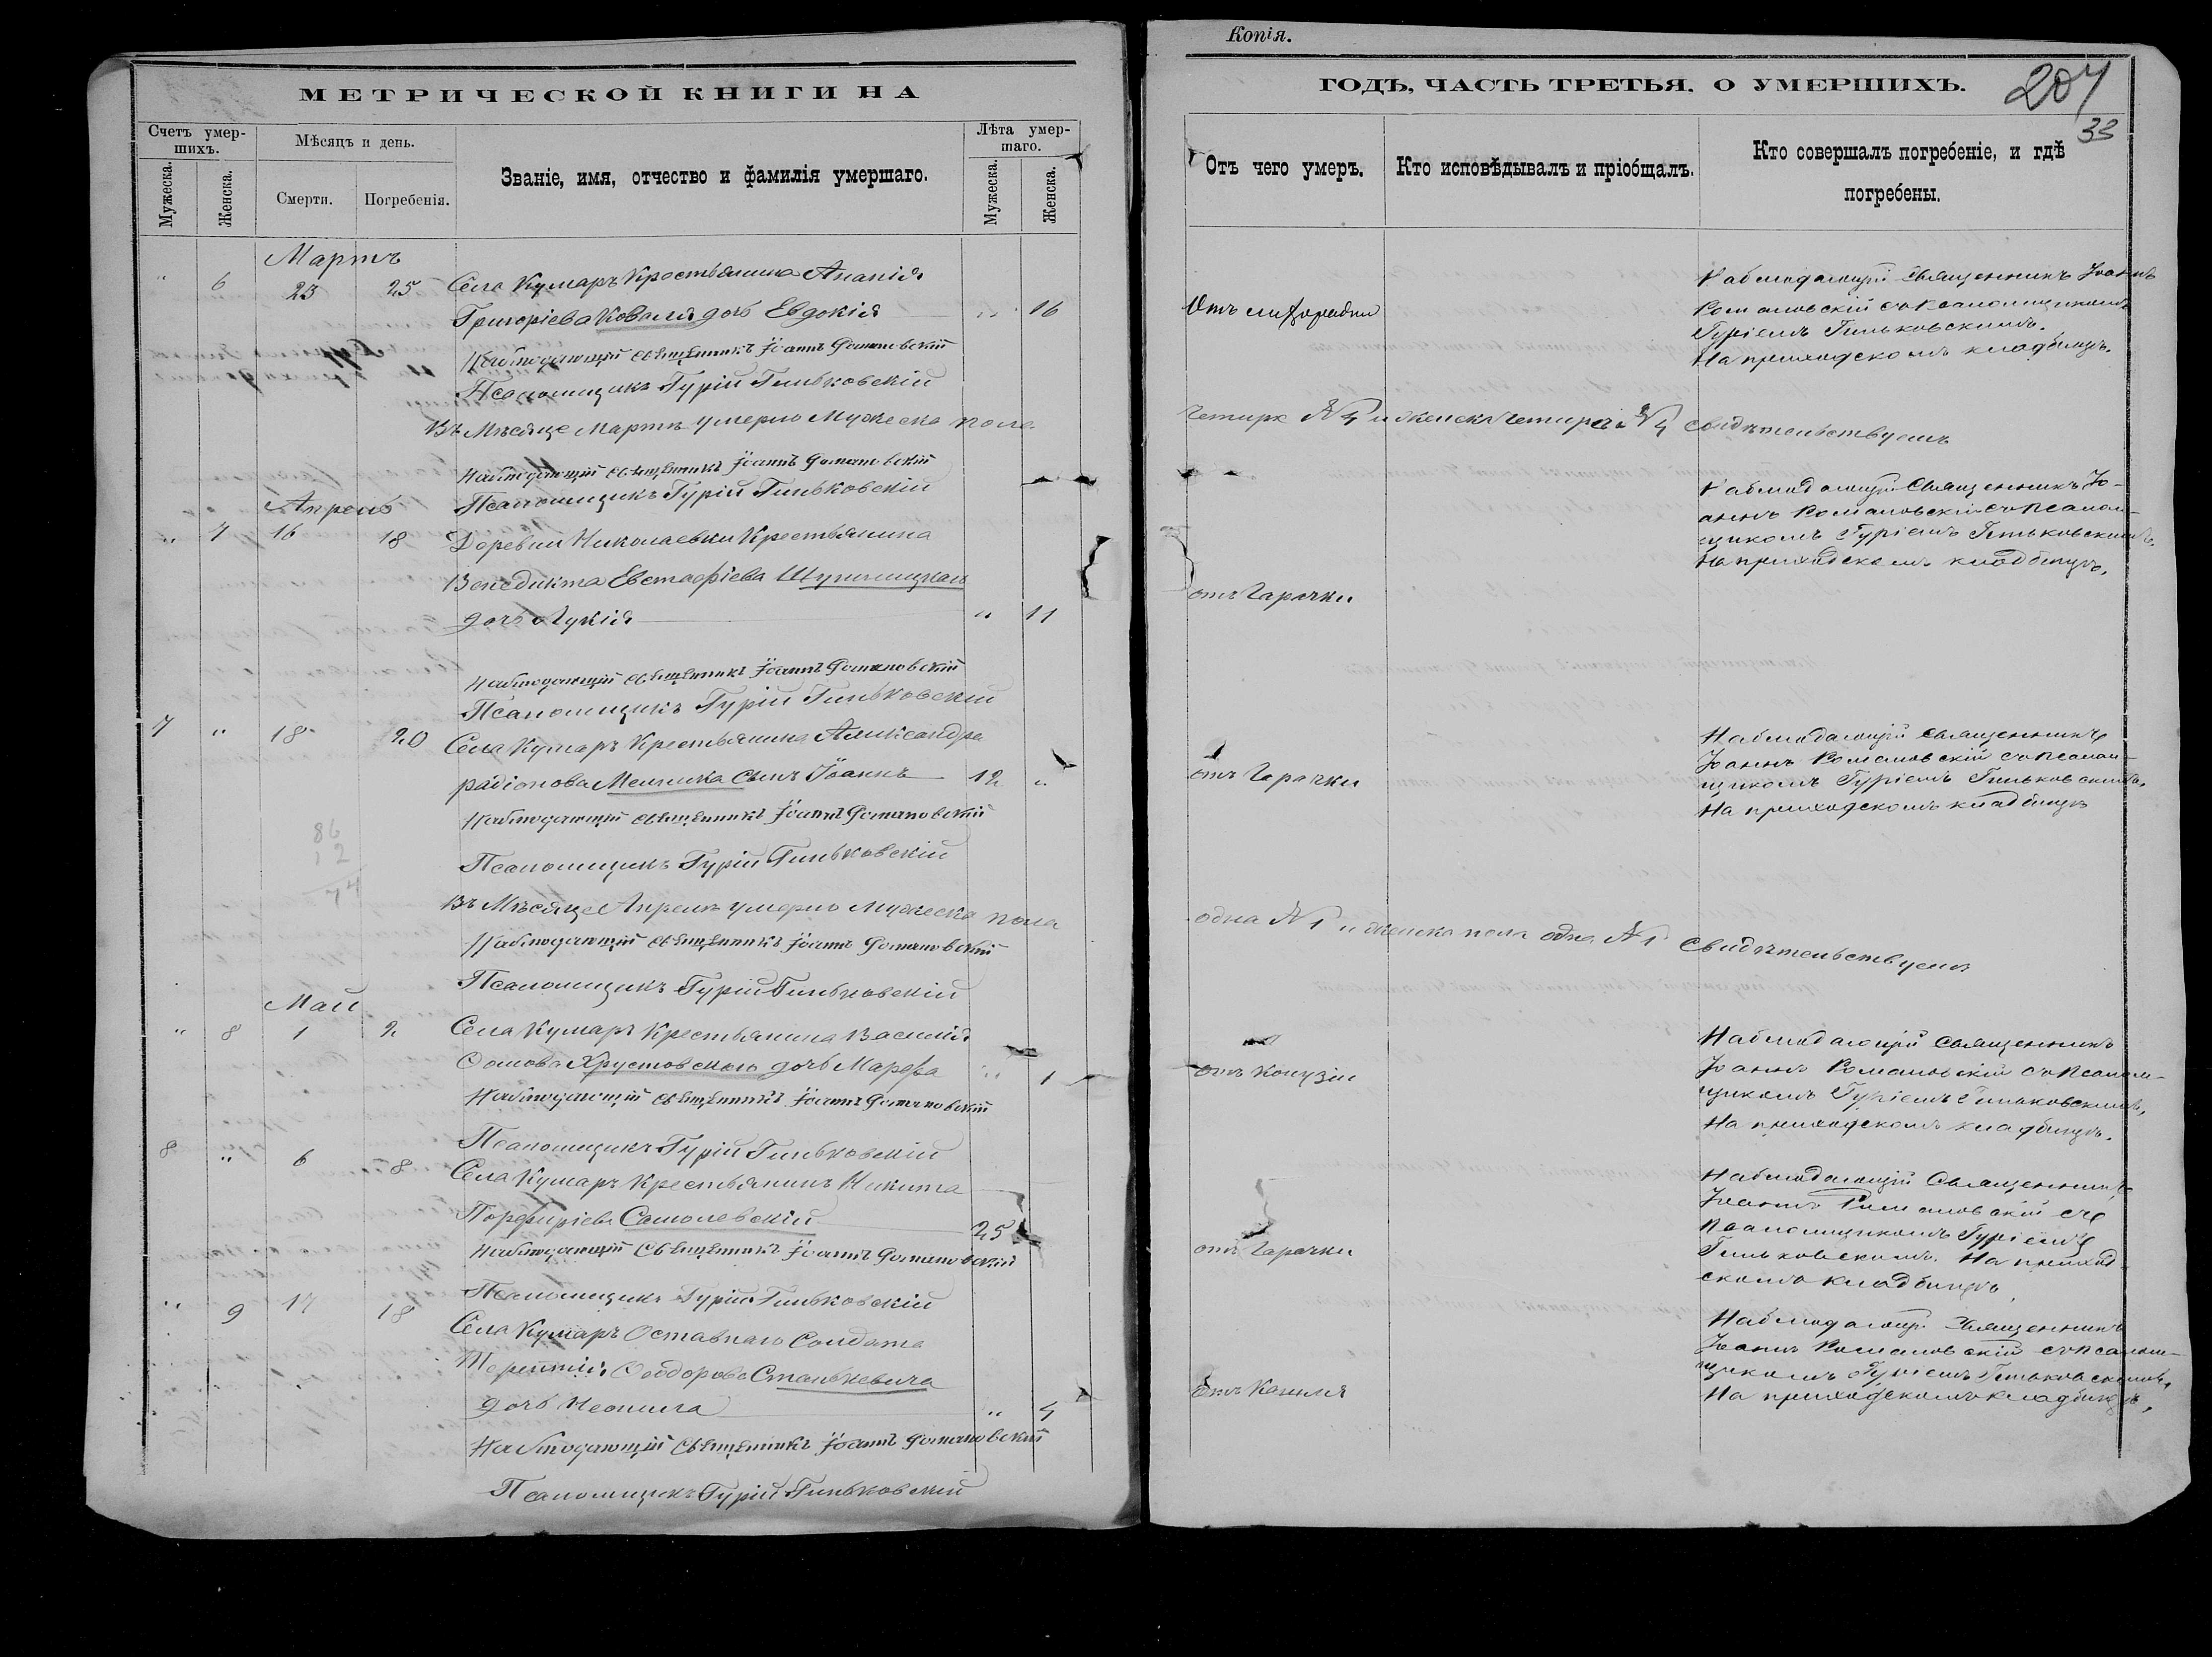 Копія.
МЕТРИЧЕСКОЙ КНИГИ НА
ГОДЪ, ЧАСТЬ ТРЕТЬЯ. О УМЕРШИХЪ.
207
33
Счетъ умершихъ.
Мужеска.
Женска.
Мѣсяцъ и день.
Смерти.
Погребенія.
Званіе, имя, отчество и фамилія умершаго.
Лѣта умершаго.
Мужеска.
Женска.
Отъ чего умеръ.
Кто исповѣдывалъ и пріобщалъ.
Кто совершалъ погребеніе, и гдѣ
погребены.
Мартъ
" 6 23 25 Села Кумаръ Крестьянина Ананія
Григоріева Коваля дочь Евдокія " 16
Отъ лихорадки
Наблюдающій Священникъ Іоаннъ
Романовскій съ Псаломщикомъ
Гуріемъ Гиньковскимъ.
На приходскомъ кладбищѣ.
Наблюдающій Священникъ Іоаннъ Романовскій
Псаломщикъ Гурій Гиньковскій
Въ Мѣсяце Мартѣ умерло Мужеска пола
четыре № 4 и женска четыре № 4 свидѣтельствуемъ
Наблюдающій Священникъ Іоаннъ Романовскій
Псаломщикъ Гурій Гиньковскій
Апрель
" 7 16 18 Деревни Николаевки Крестьянина
Венедикта Евстафіева
дочь Лукія " 11
отъ Гарячки
Наблюдающій Священникъ Іо-
аннъ Романовскій съ Псалом-
щикомъ Гуріемъ Гиньковскимъ.
На приходскомъ кладбищѣ.
Наблюдающій Священникъ Іоаннъ Романовскій
Псаломщикъ Гурій Гиньковскій
7 " 18 20 Села Кумаръ Крестьянина Александра
радіонова Мельника сынъ Іоаннъ 12 "
отъ Гарячки
Наблюдающій Священникъ
Іоаннъ Романовскій съ Псалом-
щикомъ Гуріемъ Гиньковскимъ.
На приходскомъ кладбищѣ
Наблюдающій Священникъ Іоаннъ Романовскій
86
12
74
Псаломщикъ Гурій Гиньковскій
Въ Мѣсяце Апрелѣ умерло мужеска пола
одна № 1 и женска пола одна № 1 Свидѣтельствуемъ
Наблюдающій Священникъ Іоаннъ Романовскій
Псаломщикъ Гурій Гиньковскій
Май
" 8 1 2 Села Кумаръ Крестьянина Василія
Хрустовского дочь Марфа " 1
отъ Конузіи
Наблюдающій Священникъ
Іоаннъ Романовскій съ Псалом-
щикомъ Гуріемъ Гиньковскимъ,
На приходскомъ кладбищѣ.
Наблюдающій Священникъ Іоаннъ Романовскій
Псаломщикъ Гурій Гиньковскій
8 " 6 8 Села Кумаръ Крестьянинъ Никита
Порфиріевъ Самолевскій 25
отъ Гарячки
Наблюдающій Священникъ
Іоаннъ Романовскій съ
Псаломщикомъ Гуріемъ
Гиньковскимъ. На приход-
скомъ кладбищѣ.
Наблюдающій Священникъ Іоаннъ Романовскій
Псаломщикъ Гурій Гиньковскій
" 9 17 18 Села Кумаръ Оставнаго Солдата
Терентія Ѳеодорова Станкевича
дочь Неонила " 4
отъ Кашля
Наблюдающій Священникъ
Іоаннъ Романовскій съ Псалом-
щикомъ Гуріемъ Гиньковскимъ,
На приходскомъ кладбищѣ.
Наблюдающій Священникъ Іоаннъ Романовскій
Псаломщикъ Гурій Гиньковскій